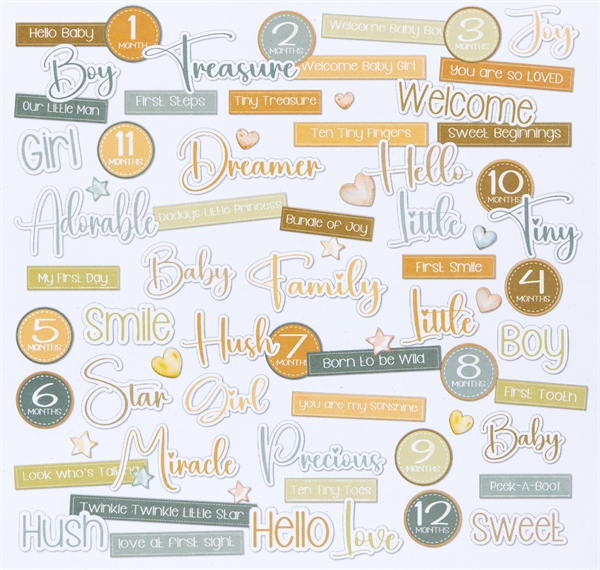 Hello Baby
1
MONTH
2
MONTHS
Welcome Baby Boy
3
MONTHS
Joy
Boy
Treasure
Welcome Baby Girl
You are so LOVED
Our Little Man
First Steps
Tiny Treasure
Welcome
Ten Tiny Fingers
Sweet Beginnings
Girl
11
MONTHS
Dreamer
Hello
10
MONTHS
Adorable
Daddy's Little Princess
Bundle of Joy
Little
Tiny
My First Day
Baby
Family
First Smile
4
MONTHS
5
MONTHS
Smile
Hush
7
MONTHS
Little
Boy
Born to be Wild
8
MONTHS
6
MONTHS
Star
Girl
You are my Sonshine
First Tooth
Miracle
Precious
9
MONTHS
Baby
Look Who's Talking
Ten Tiny Toes
Peek-A-Boo!
Twinkle Twinkle Little Star
12
MONTHS
Hush
love at first sight
Hello
Love
Sweet